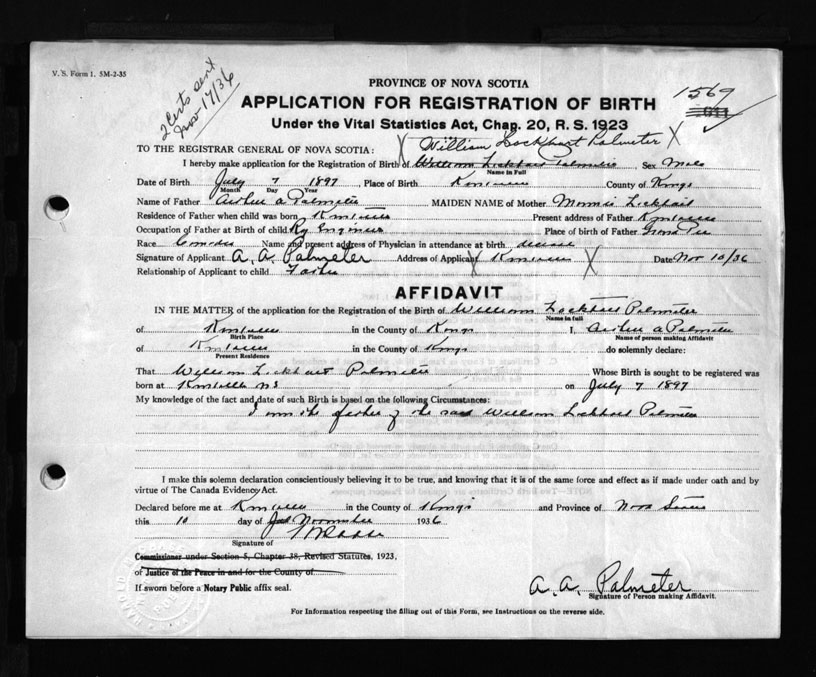 V. S. Form 1. 5M-2-35
2 Certs sent
Nov 17/36
PROVINCE OF NOVA SCOTIA
1569
APPLICATION FOR REGISTRATION OF BIRTH
Under the Vital Statistics Act, Chap. 20, R. S. 1923
William Lockhart Palmeter
TO THE REGISTRAR GENERAL OF NOVA SCOTIA:
I hereby make application for the Registration of Birth of William Lockhart Palmeter Sex Male
Name in Full
Date of Birth July 7 1897, Place of Birth Kentville County of Kings
Month Day Year
Name of Father Arthur A Palmeter MAIDEN NAME of Mother Minnie Lockhart
Residence of Father when child was born Kentville Present address of Father Kentville
Occupation of Father at Birth of child Ry Engineer Place of birth of Father Grand Pre
Race Name and present address of Physician in attendance at birth
Signature of Applicant A. A. Palmeter Address of Applicant Kentville Date Nov 10/36
Relationship of Applicant to child Father
AFFIDAVIT
IN THE MATTER of the application for the Registration of the Birth of William Lockhart Palmeter
Name in full
of Kentville in the County of Kings I, Arthur A Palmeter
Birth Place Name of person making Affidavit
of Kentville in the County of Kings do solemnly declare:
Present Residence
That William Lockhart Palmeter Whose Birth is sought to be registered was
born at Kentville NS on July 7 1897
My knowledge of the fact and date of such Birth is based on the following Circumstances:
I am the father of the said William Lockhart Palmeter
I make this solemn declaration conscientiously believing it to be true, and knowing that it is of the same force and effect as if made under oath and by
virtue of The Canada Evidence Act.
Declared before me at Kentville in the County of Kings and Province of Nova Scotia
this 10 day of November 1936
Signature of
Commissioner under Section 5, Chapter 38, Revised Statutes, 1923,
or Justice of the Peace in and for the County of
If sworn before a Notary Public affix seal.
A. A. Palmeter
Signature of Person making Affidavit.
For Information respecting the filling out of this Form, see Instructions on the reverse side.